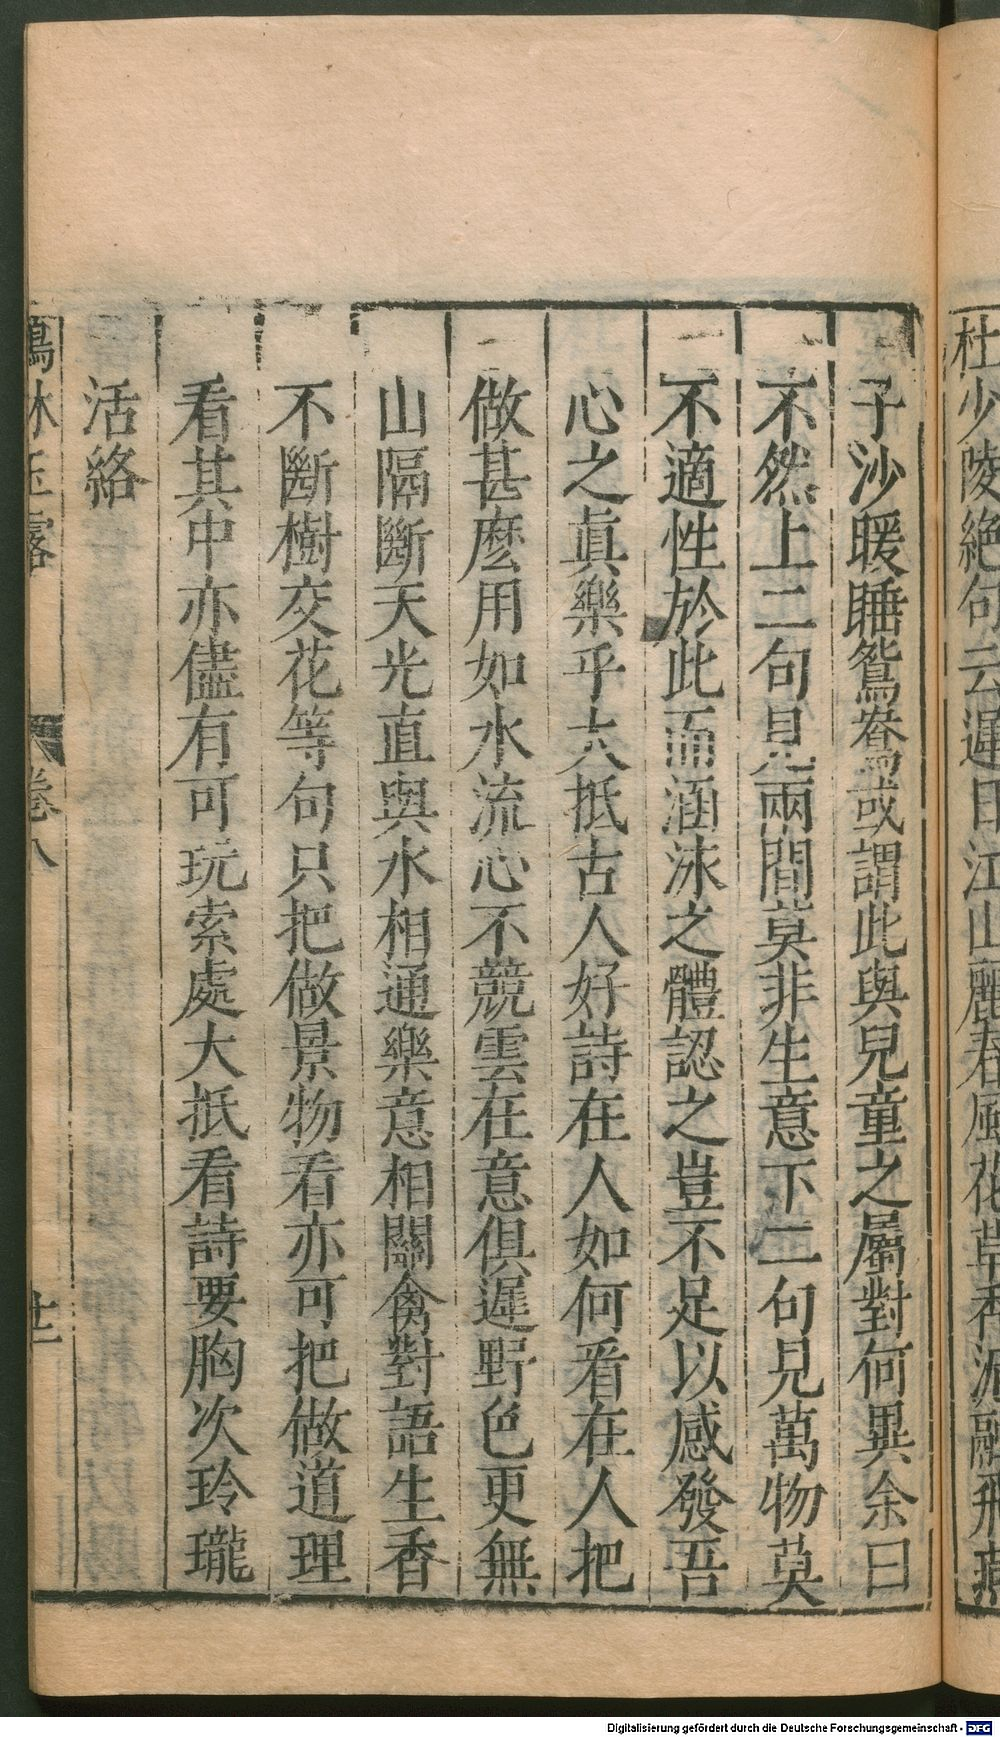 杜少陵絶句云遲日江山麗春風花草香泥融飛燕
子沙暖睡鴛鴦或謂此與兒童之屬對何異余曰
不然上二句見兩間莫非生意下二句見萬物莫
不適性於此而涵泳之體認之豈不足以感發吾
心之眞樂乎大抵古人好詩在人如何看在人把
做甚麽用如水流心不競雲在意俱遲野色更無
山隔斷天光直與水相通樂意相關禽對語生香
不斷樹交花等句只把做景物看亦可把做道理
看其中亦儘有可玩索處大抵看詩要胸次玲瓏
活絡
鶴林玉露 卷八 廿二
Digitalisierung gefördert durch die Deutsche Forschungsgemeinschaft - DFG